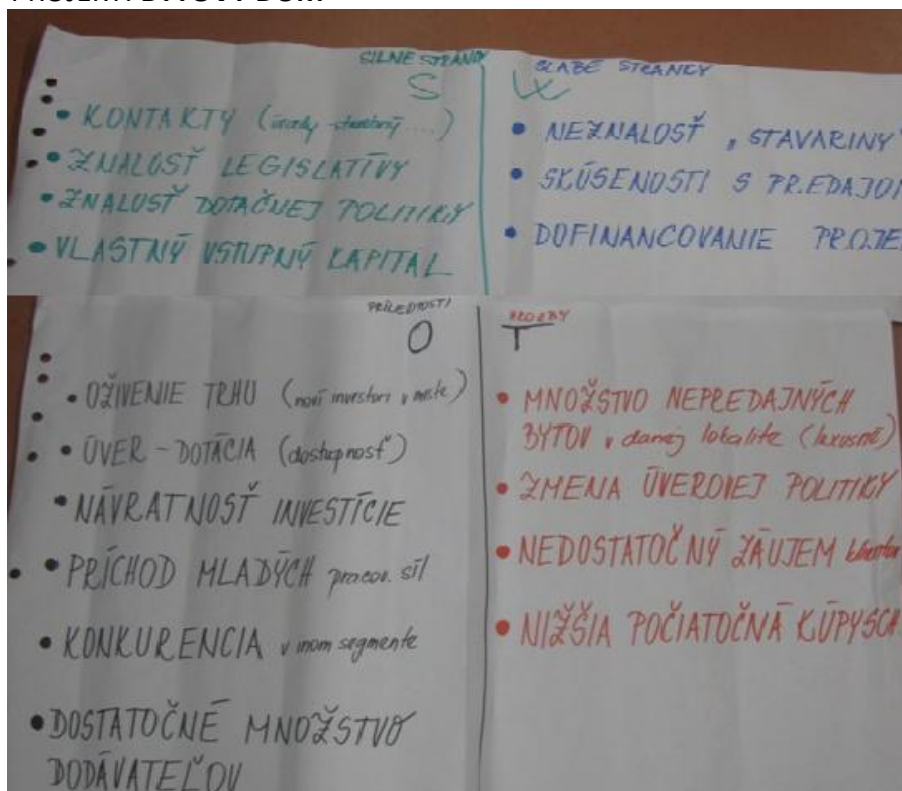 SILNÉ STRÁNKY
S
• KONTAKTY (úrady - stavebný ....)
• ZNALOSŤ LEGISLATÍVY
• ZNALOSŤ DOTAČNEJ POLITIKY
• VLASTNÝ VSTUPNÝ KAPITAL
SLABÉ STRÁNKY
W
• NEZNALOSŤ „STAVARINY"
• SKÚSENOSTI S PREDAJO
• DOFINANCOVANIE PROJE
PRÍLEŽITOSTI
O
• OŽIVENIE TRHU (noví investori v meste)
• ÚVER - DOTÁCIA (dostupnosť)
• NÁVRATNOSŤ INVESTÍCIE
• PRÍCHOD MLADÝCH pracov. síl
• KONKURENCIA v inom segmente
• DOSTATOČNÉ MNOŽSTVO
DODÁVATEĽOV
HROZBY
T
• MNOŽSTVO NEPREDAJNÝCH
BYTOV v danej lokalite (luxusné)
• ZMENA ÚVEROVEJ POLITIKY
• NEDOSTATOČNÝ ZÁUJEM
• NIŽŠIA POČIATOČNÁ KÚPYSCH